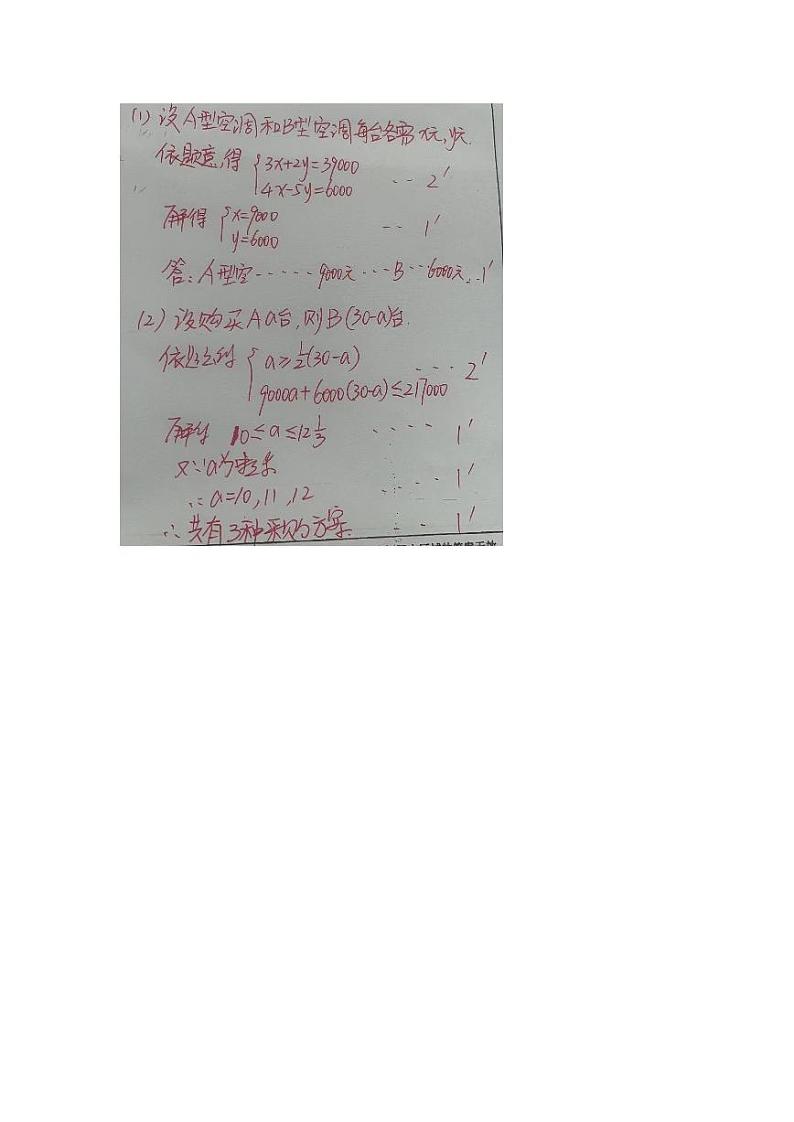 (1) 设A型空调和B型空调每台各需x元,y元.
依题意,得 {3x+2y=39000
4x-5y=6000 ‥‥ 2′
解得 {x=9000
y=6000 ‥‥ 1′
答:A型空‥‥‥9000元‥‥B‥‥6000元‥1′
(2) 设购买A a台,则B(30-a)台.
依题意得 {a≥½(30-a) ‥‥ 2′
9000a+6000(30-a)≤217000
解得 10≤a≤12⅓ ‥‥ 1′
又∵a为整数
∴a=10,11,12 ‥‥ 1′
∴共有3种采购方案. ‥‥ 1′